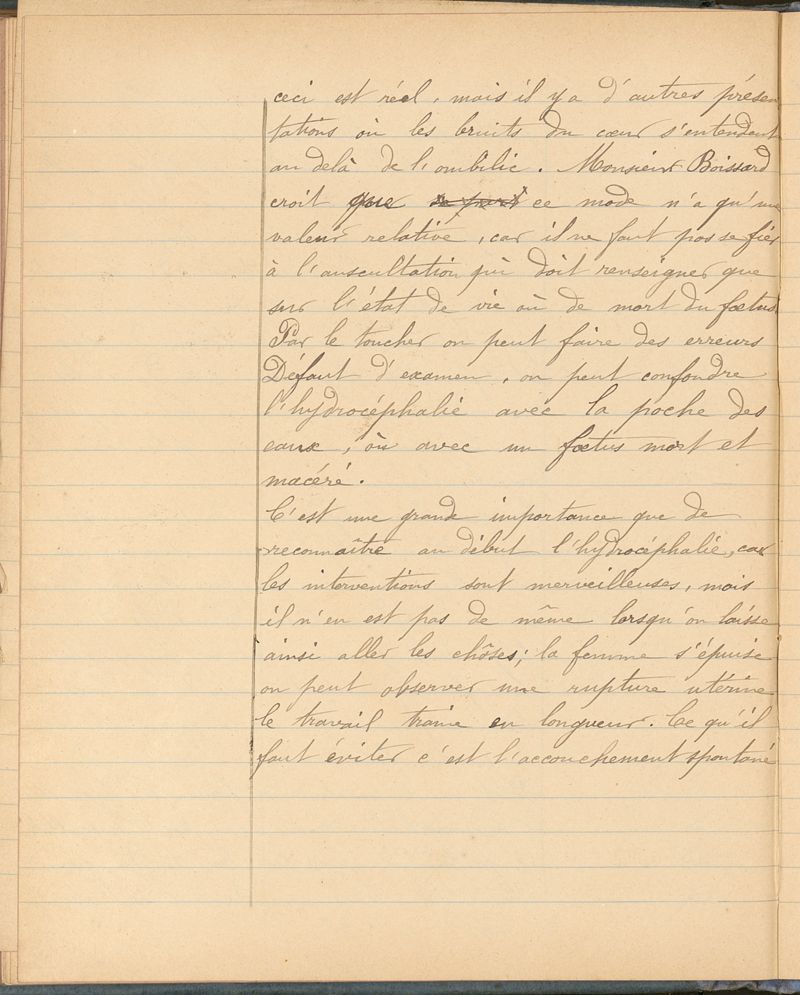 ceci est réel, mais il y a d'autres présen
tations où les bruits du cœur s'entendent
au delà de l'ombilic. Monsieur Boissard
croit que ce mode n'a qu'une
valeur relative, car il ne faut pas se fier
à l'auscultation qui doit renseigner que
sur l'état de vie où de mort du fœtus
Par le toucher on peut faire des erreurs
Défaut d'examen, on peut confondre
l'hydrocéphalie avec la poche des
eaux, où avec un fœtus mort et
macéré.
C'est une grande importance que de
reconnaître au début l'hydrocéphalie, car
les interventions sont merveilleuses, mais
il n'en est pas de même lorsqu'on laisse
ainsi aller les chôses; la femme s'épuise
on peut observer une rupture utérine
le travail traine en longueur. Ce qu'il
faut éviter c'est l'accouchement spontané